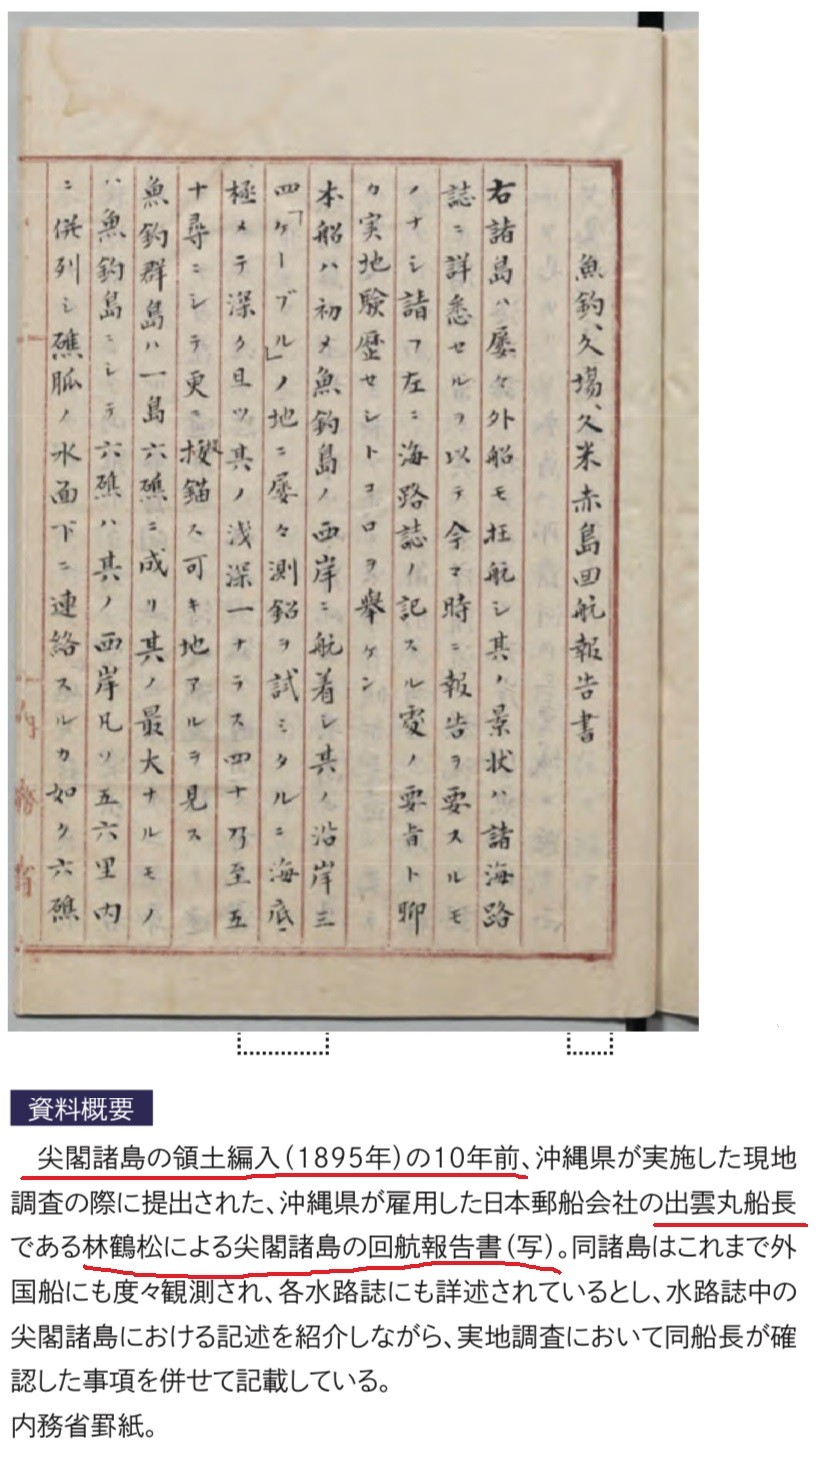 魚釣、久場、久米赤島回航報告書
右諸島ハ屡々外船モ抂航シ其ノ景状ハ諸海路
誌ニ詳悉セルヲ以テ今マ時ニ報告ヲ要スルモ
ノナシ請フ左ニ海路誌ノ記スル処ノ要旨ト聊
カ実地験歴セシトコロヲ挙ケン
本船ハ初メ魚釣島ノ西岸ニ航着シ其ノ沿岸三
四「ケーブル」ノ地ニ屡々測鉛ヲ試ミタルニ海底
極メテ深ク且ツ其ノ浅深一ナラス四十乃至五
十尋ニシテ更ニ投錨ス可キ地アルヲ見ス
魚釣群島ハ一島六礁ニ成リ其ノ最大ナルモノ
ハ魚釣島ニシテ六礁ハ其ノ西岸凡ソ五六里内
ニ併列シ礁脈ノ水面下ニ連絡スルカ如ク六礁
内務省
資料概要
尖閣諸島の領土編入（1895年）の10年前、沖縄県が実施した現地
調査の際に提出された、沖縄県が雇用した日本郵船会社の出雲丸船長
である林鶴松による尖閣諸島の回航報告書（写）。同諸島はこれまで外
国船にも度々観測され、各水路誌にも詳述されているとし、水路誌中の
尖閣諸島における記述を紹介しながら、実地調査において同船長が確
認した事項を併せて記載している。
内務省罫紙。